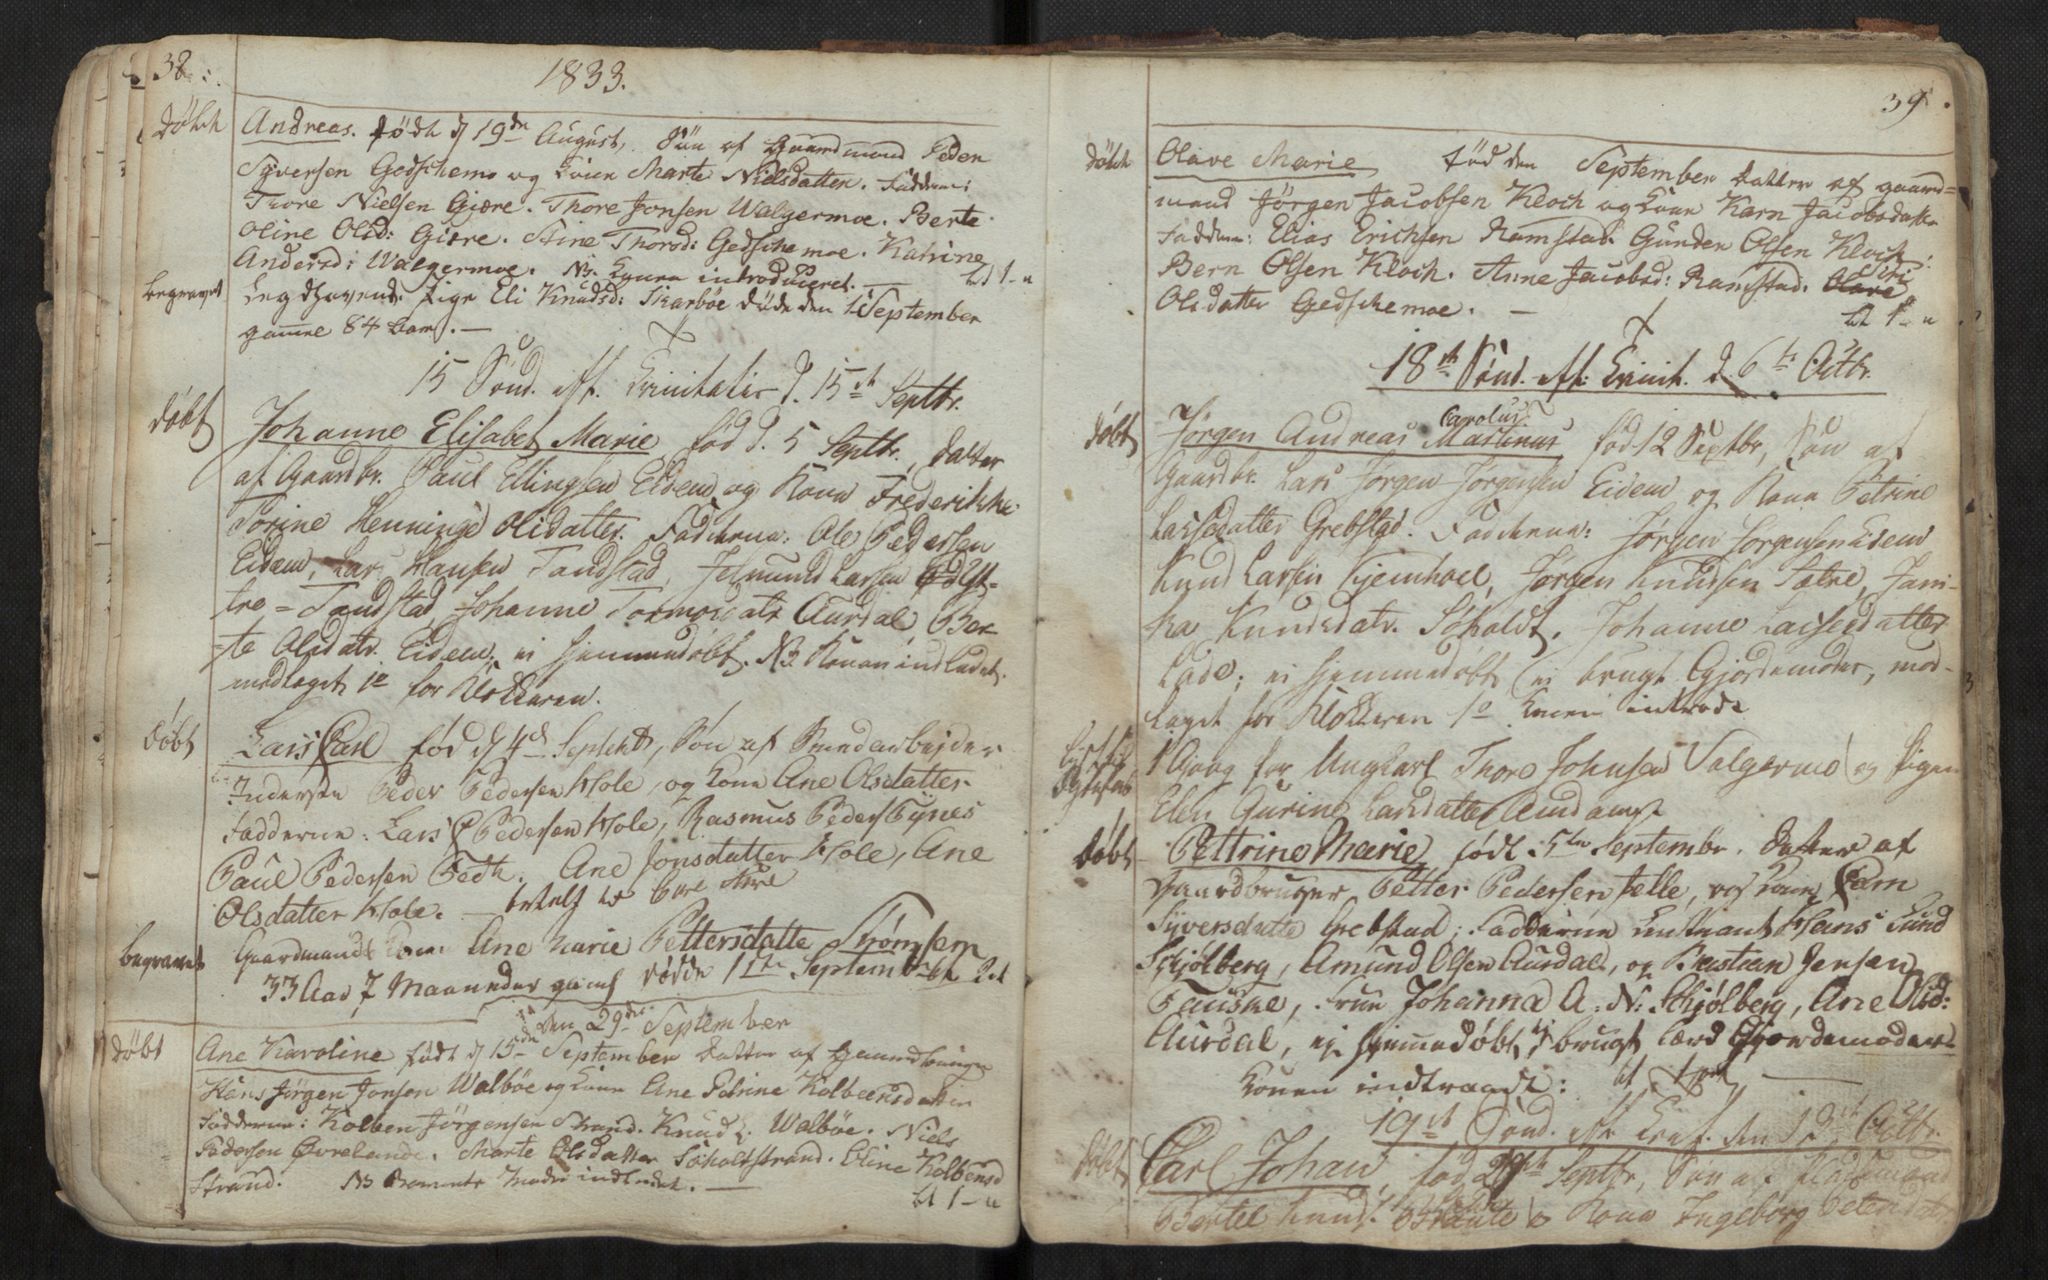 38
1833.
døbt Andreas. født d 19de August, Søn af Gaardmand Peder
Syversen Gedschemo og Kone Marte Nielsdatter. Faddere:
Thore Nielsen Giære. Thore Jonsen Walgermoe. Berte
Oline Olsd: Giære. Stine Thorsd: Gedschemoe. Katrine
Andersd: Walgermoe. NB. Konen introduceret. — bt 1-u
begravet Legdhavende Pige Eli Knudsd: Skarbøe døde den 1 September
gamel 84 Aar. —
15 Sönd. eft. Trinitatis d. 15de Septbr.
døbt Johanne Elisabet Marie fød d. 5 Septbr., datter
af Gaardbr. Paul Ellingsen Eidem og Kone Frederikke
Torine Henninge Olsdatter. Fadderne: Ole Pedersen
Eidem, Lars Hansen Tandstad, Larsen Yt-
tre-Tandstad, Johanne Tormosdatr Aurdal, Ber-
te Olsdatr. Eidem, ei hjemmedøbt. NB. Konen indledet.
modtaget for Klokkeren.
døbt Lars Carl fød d 4de Septebr, Søn af
Inderste Peder Pedersen Hole, og Kone Ane Olsdatter.
Fadderne: Lars Pedersen Hole, Rasmus Peders Fynes
Paul Pedersen Fedh. Ane Jonsdatter Hole, Ane
Olsdatter Hole. —
begravet Gaardmands Kone Ane Marie Pettersdatte Strømsem
33 Aar 7 Maaneder gaml døde 11te September
Den 29de September
døbt Ane Karoline født d 15de September Datter af Gaardbruger
Hans Jørgen Jonsen Walbøe og Kone Ane Petrine Kolbeensdatter
Fadderne: Kolben Jørgensen Strand. Knud L. Walbøe. Niels
Pedersen Øvrelande. Marte Olsdatter Søholtstrand. Eline Kolbensd
Strand. NB Barnets Moder indledet. — bt 1-u
39
døbt Olave Marie fød den September Datter af gaard=
mand Jørgen Jacobsen Kloch og Kone Karn Jacobsdatter
Faddere: Elias Erichsen Ramstad. Gunder Olsen Kloch
Bern Olsen Kloch. Anne Jacobsd: Ramstad. Olave Siri
Olsdatter Gedschemoe. — bt 1-u
18de Sönd. eft: Trinit. d. 6te Octbr.
døbt Jørgen Andreas Martinus Carolus fød 12 Septbr, Søn af
Gaardbr. Lars Jørgen Jörgensen Eidem og Kone Petrine
Larsdatter Grebstad. Fadderne: Jørgen Jørgensen Eidem
Knud Larsen Gjemhoel, Jørgen Knudsen Sætre, Jani-
ka Knudsdatr. Søholdt, Johanne Larsesdatter
Lade; ei hjemmedøbt, ei brugt Gjordemoder, mod-
taget for Klokkeren Konen introd:
1 Gang for Ungkarl Thore Johnsen Valgermo og Pigen
Elen Gurine Larsdatter Amdam
døbt Pettrine Marie født 5te Septembr. Datter af
Gaardbruger Petter Pedersen Jelle, og Kone Carn
Syversdatte Grebstad; Fadderne Leutnant Hans Lund
Schjølberg, Amund Olsen Aurdal, og Bastian Jensen
Fauske, Frue Johanna A. N: Schjølberg, Ane Olsd:
Aurdal, ej hjemmedøbt, ej brugt lærd Gjordemoder
Konen indtraadt:
19de Sönd. eft Trinit. den Octbr.
døbt Carl Johan, fød Septbr, Søn af
Bertel Knuds. og Kone Ingeborg Petersdatr